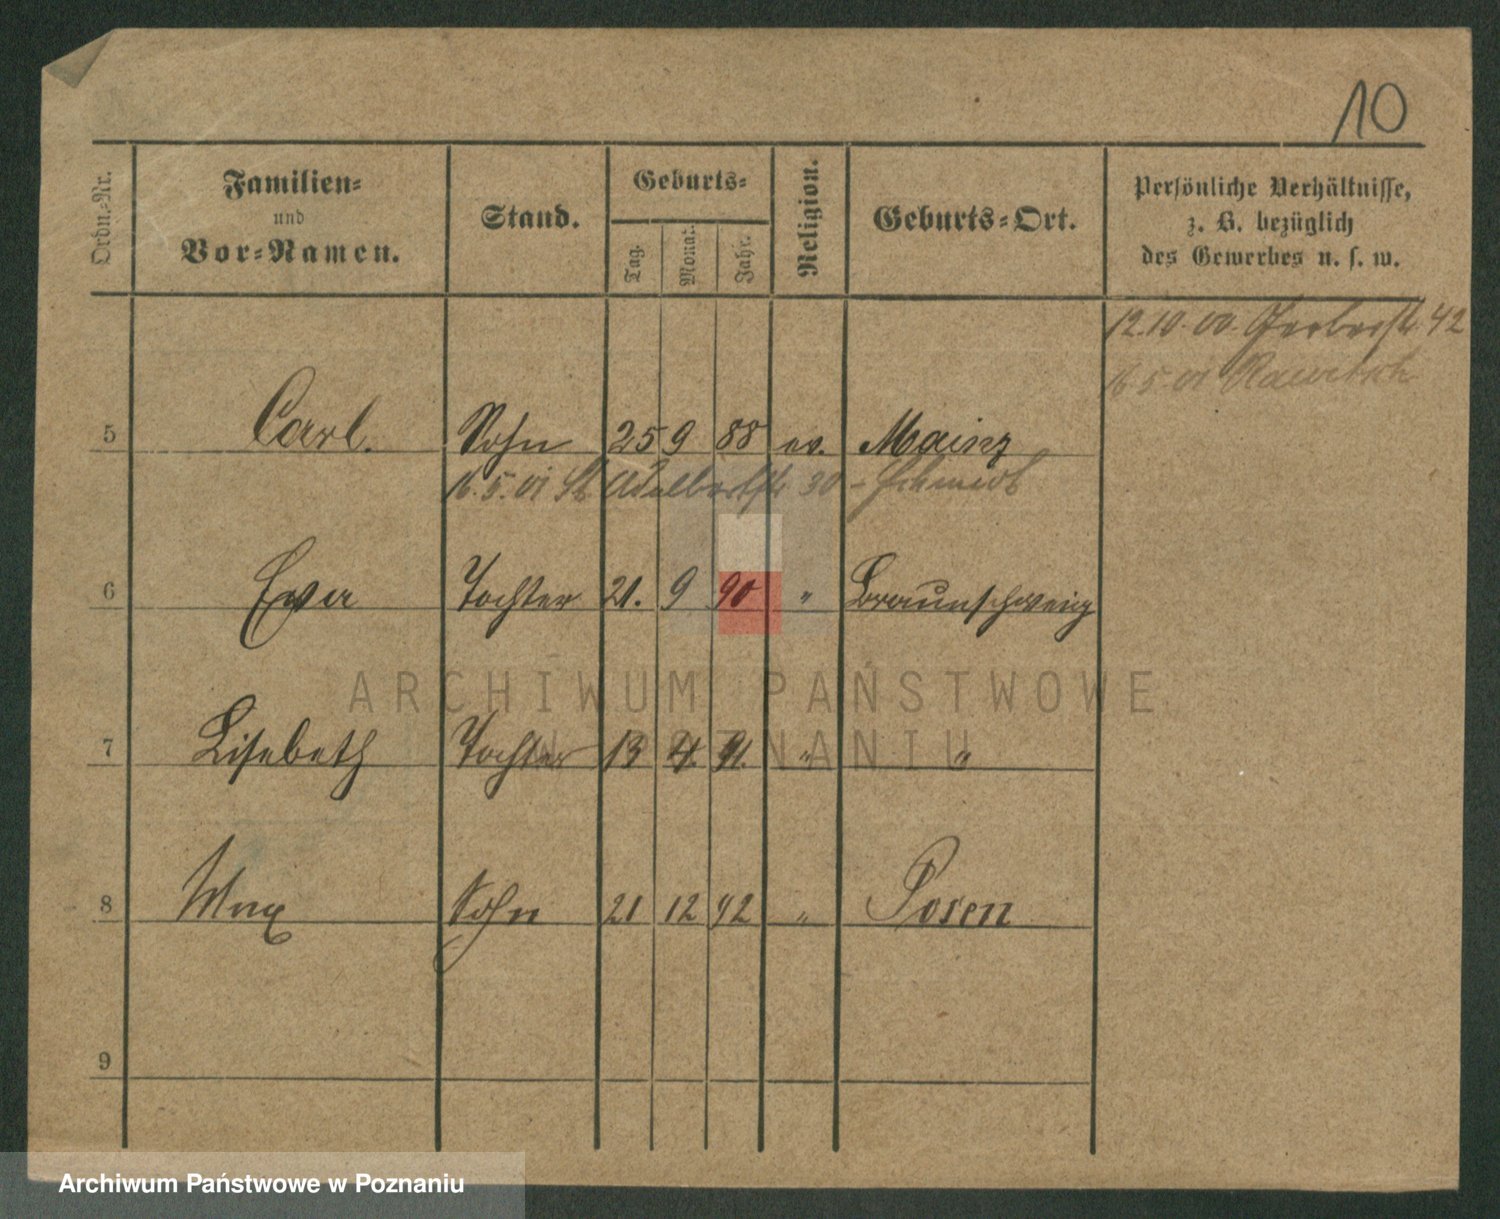 10
Ordn.-Nr.
Familien-
und
Vor-Namen.
Stand.
Geburts-
Tag.
Monat.
Jahr.
Religion.
Geburts-Ort.
Persönliche Verhältnisse,
z. B. bezüglich
des Gewerbes u. s. w.
12.10.00. Gerberstr 42
16.5.01 Rawitsch
5 Carl. Sohn 25 9 88 ev. Mainz
16.5.01 St Adalbertstr 30 -
6 Eva Tochter 21. 9 90 " Braunschweig
ARCHIWUM PAŃSTWOWE
W POZNANIU
7 Lisebeth Tochter 13 4. 91. " "
8 Max Sohn 21 12 92 " Posen
9
Archiwum Państwowe w Poznaniu